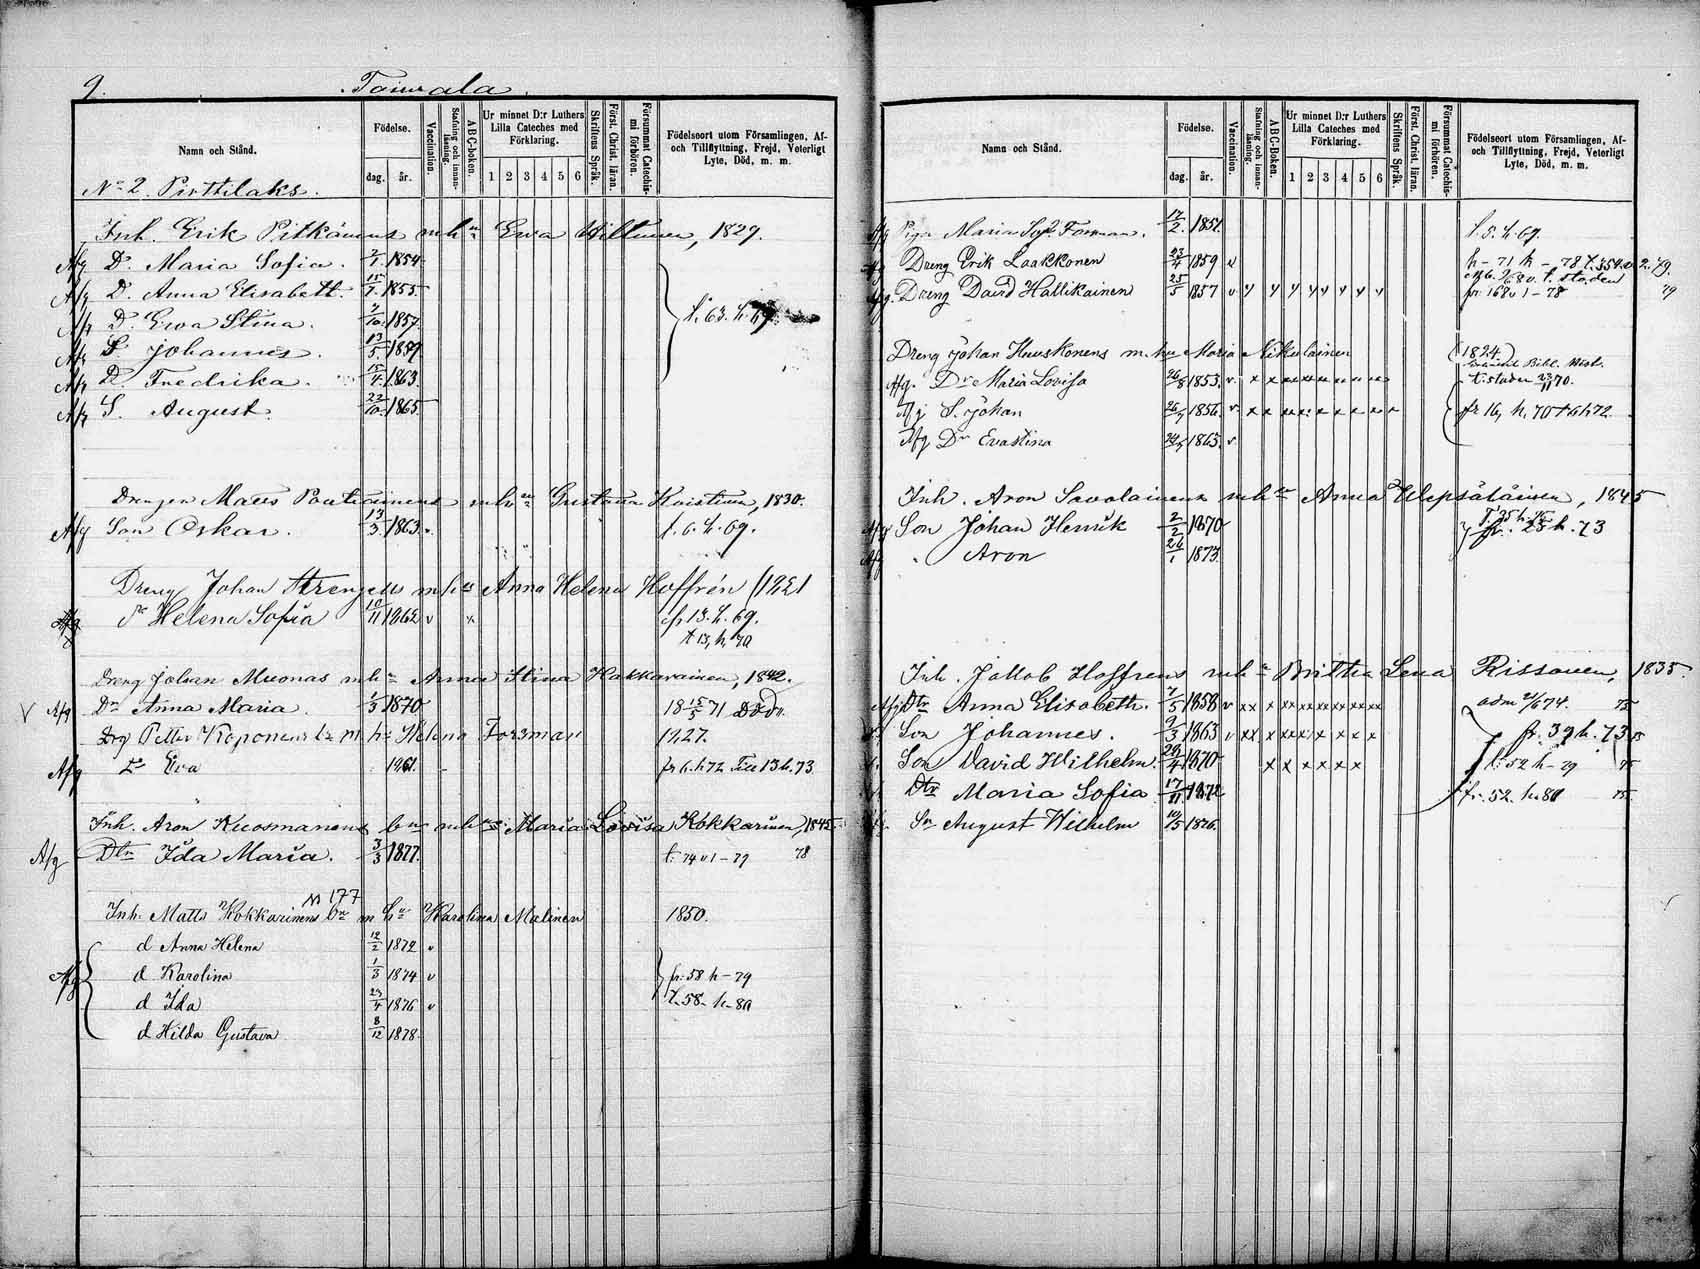 9. Toivala
Namn och Stånd.
Födelse.
dag. år.
Vaccination.
Stafning och innanläsning.
ABC-boken.
Ur minnet D:r Luthers Lilla Cateches med Förklaring.
1 2 3 4 5 6
Skriftens Språk.
Först. Christ. läran.
Försummat Catechismi förhören.
Födelseort utom Församlingen, Af- och Tillflyttning, Frejd, Veterligt Lyte, Död, m. m.
No 2. Pirttilaks.
Inh. Erik Pitkänens mhu Ewa Hiltunen, 1829.
Afg D. Maria Sofia. 1854
Afg D. Anna Elisabett. 1855
Afg D. Ewa Stina. 1857
Afg S. Johannes. 13/5 1859
Afg D. Fredrika. 15/4 1863
t. 63. h. 69.
Afg S. August. 22/10 1865
Drengen Matts mhu Gustava Kristina, 1830.
Afg Son Oskar. 13/3 1863 t. 6. h. 69.
Dreng Johan Strengell mhu Anna Helena Hoffrén
Afg Dr Helena Sofia 10/11 1862 v fr 13. h. 69.
t 13, h, 70
Dreng Johan Muonas mhu Anna Stina Hakkarainen, 1842.
V Afg Dr Anna Maria. 1/3 1870 18 15/5 71
Drg Petter Koponens mhu Helena Forsman 1827.
Afg Eva 1861. fr 6 h 72 Till 13 h. 73
Inh. Aron Kuosmanens bn mhu Maria Lovisa Kokkarinen, 1845
Afg Dtr Ida Maria. 3/3 1877. t. 74 v 1 - 79 78
N 177
Inh. Matts Kokkarinens bn m hu Karolina Malinen 1850.
d Anna Helena 12/2 1872 v
Afg d Karolina 1/3 1874 v fr. 58 h - 79
d Ida 23/4 1876 v t. 58 - h - 80
d Hilda Gustava 8/12 1878
Namn och Stånd.
Födelse.
dag. år.
Vaccination.
Stafning och innanläsning.
ABC-boken.
Ur minnet D:r Luthers Lilla Cateches med Förklaring.
1 2 3 4 5 6
Skriftens Språk.
Först. Christ. läran.
Försummat Catechismi förhören.
Födelseort utom Församlingen, Af- och Tillflyttning, Frejd, Veterligt Lyte, Död, m. m.
Afg Pigan Maria Forsman. 17/2 1851 t. 5. h. 69.
Afg Dreng Erik Laakkonen 23/4 1859 v
t. staden
Afg. Dreng David Hallikainen 25/5 1857 v fr. 168 v 1 - 78 79
Dreng Johan Huuskonens mhu Maria Nikulainen 1824
Afg. Dr Maria Lovisa 26/8 1853 v t. staden 23/11 70.
Afg S. Johan 1856 v fr 16, h. 70 t 6 h 72
Afg Dr Evastina 1865 v
Inh. Aron Savolainens mhu Anna 1845
Afg Son Johan Henrik 2/2 1870 fr. 28 h. 73
Afg Aron 26/1 1873
Inh. Jakob Hoffrens mhu Britha Lena Rissanen, 1835.
Afg Dtr Anna Elisabeth. 7/5 1858 v adm 21/6 74. 75
Son Johannes. 9/3 1863 v fr. 39 h. 73 75
Son David Wilhelm. 28/4 1870 t. 52 h - 79 75
Dtr Maria Sofia 17/11 1872 fr. 52. h. 80 75
Sn August Wilhelm 10/5 1876.